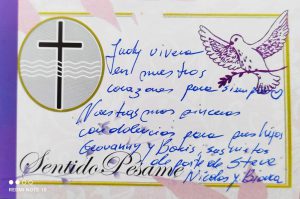 Judy vivera
en nuestros
corazones para siempre
Nuestras mas sinceras
condolencias para sus hijos
Geovanny y Boris, sus nietos
de parte de Steve
Nicolas y Bianca
Sentido Pésame
REDMI NOTE 10